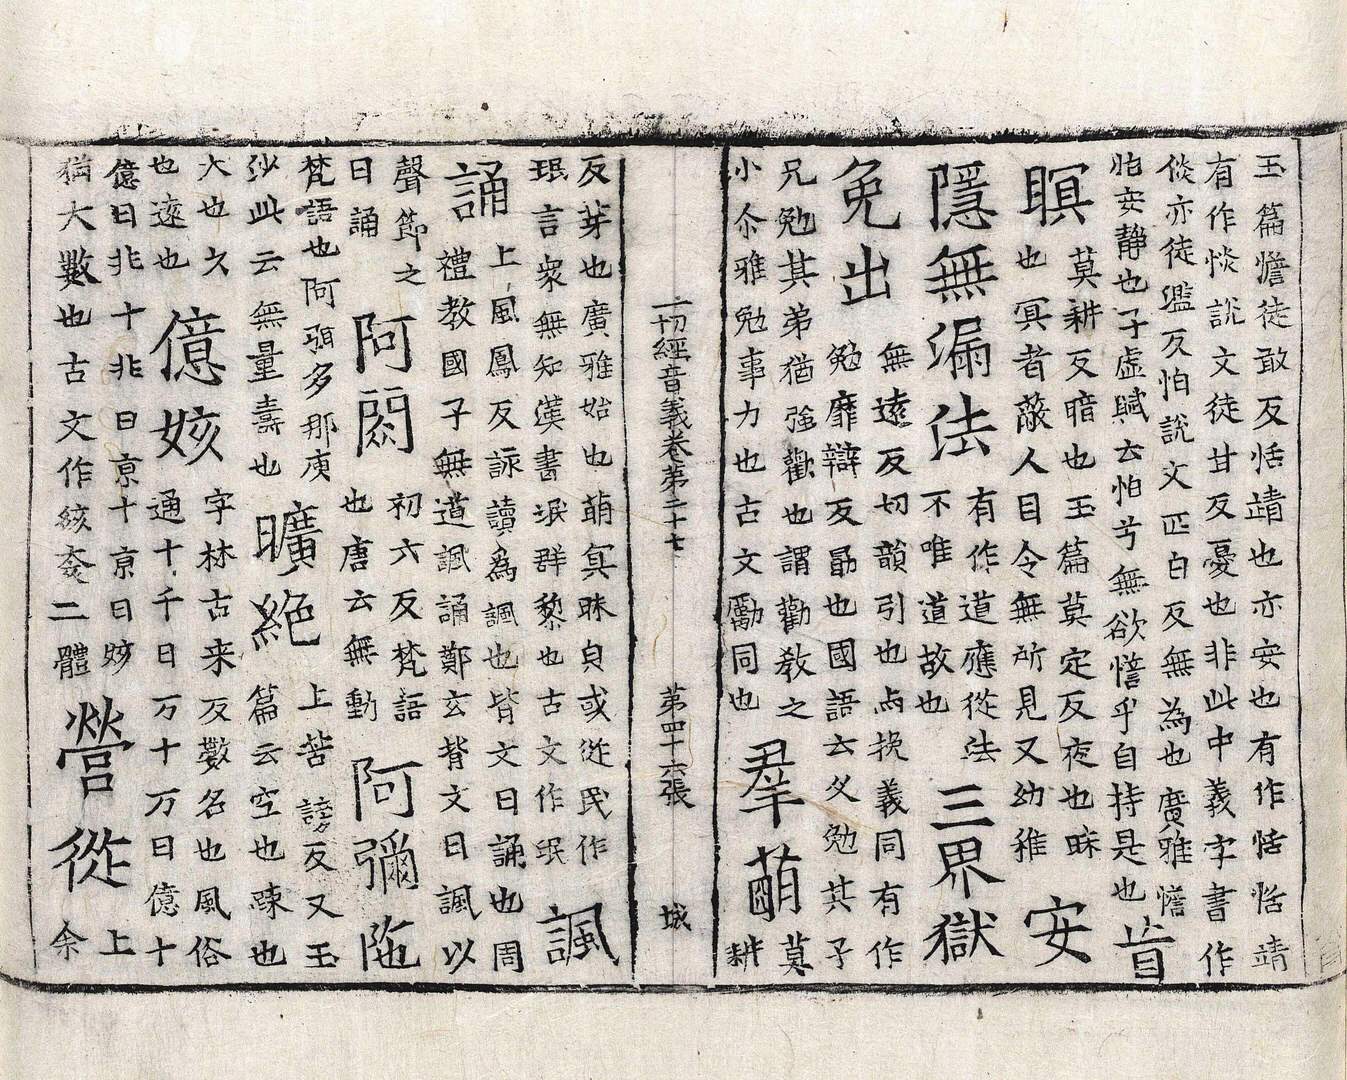 玉篇憺徒敢反恬靖也亦安也有作恬恬靖
有作惔說文徒甘反憂也非此中義字書作
倓亦徒濫反怕說文匹白反無為也廣雅憺
怕安静也子虛賦云怕兮無欲憺乎自持是也
盲
瞑
莫耕反暗也玉篇莫定反夜也昧
也冥者蔽人目令無所見又幼稚
安
隱無漏法
有作道應從法
不唯道故也
三界獄
免出
無遠反切韻引也占挽義同有作
勉靡辯反勗也國語云父勉其子
兄勉其弟猶強勸也謂勸教之
小尒雅勉事力也古文勵同也
羣萌
莫
耕
一切經音義卷第二十七 第四十六張 城
反芽也廣雅始也萌冥昧皃或從民作
氓言衆無知漢書氓群黎也古文作氓
諷
誦
上風鳳反詠讀為諷也背文曰誦也周
禮教國子無道諷誦鄭玄背文曰諷以
聲節之
曰誦
阿閦
初六反梵語
也唐云無動
阿彌陁
梵語也阿弭多那庾
沙此云無量壽也
曠絕
上苦謗反又玉
篇云空也踈也
大也久
也遠也
億姟
字林古来反數名也風俗
通十千曰万十万曰億十
億曰兆十兆曰京十京曰姟
猶大數也古文作絯㚊二體
營從
上
余